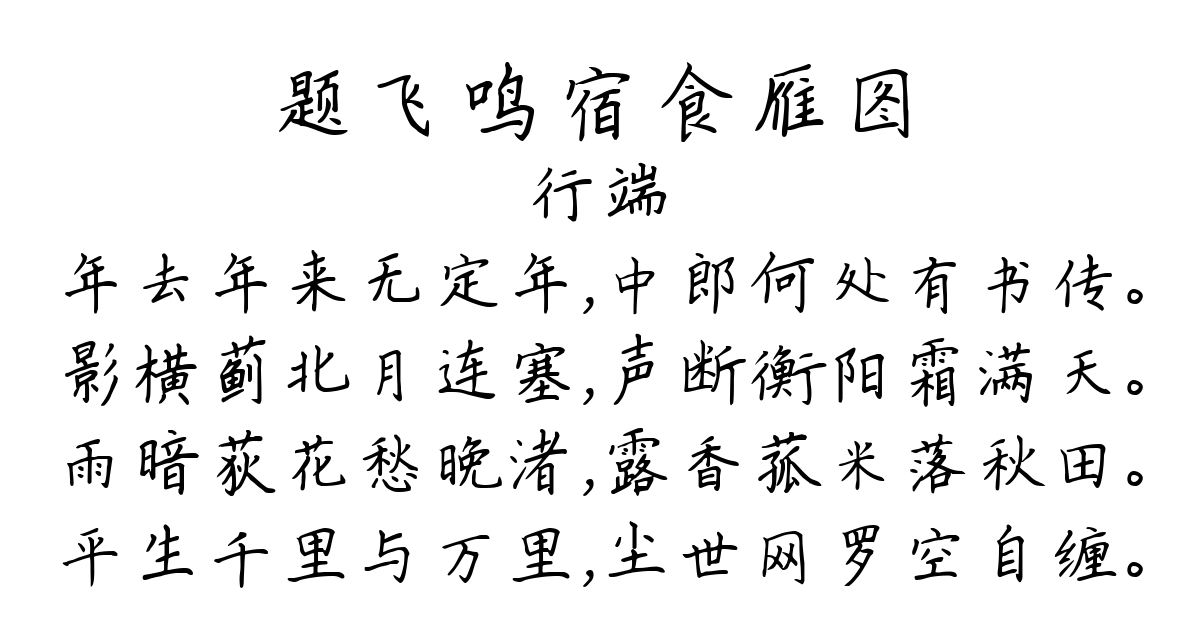 题飞鸣宿食雁图
行端
年去年来无定年,中郎何处有书传。
影横蓟北月连塞,声断衡阳霜满天。
雨暗荻花愁晚渚,露香菰米落秋田。
平生千里与万里,尘世网罗空自缠。